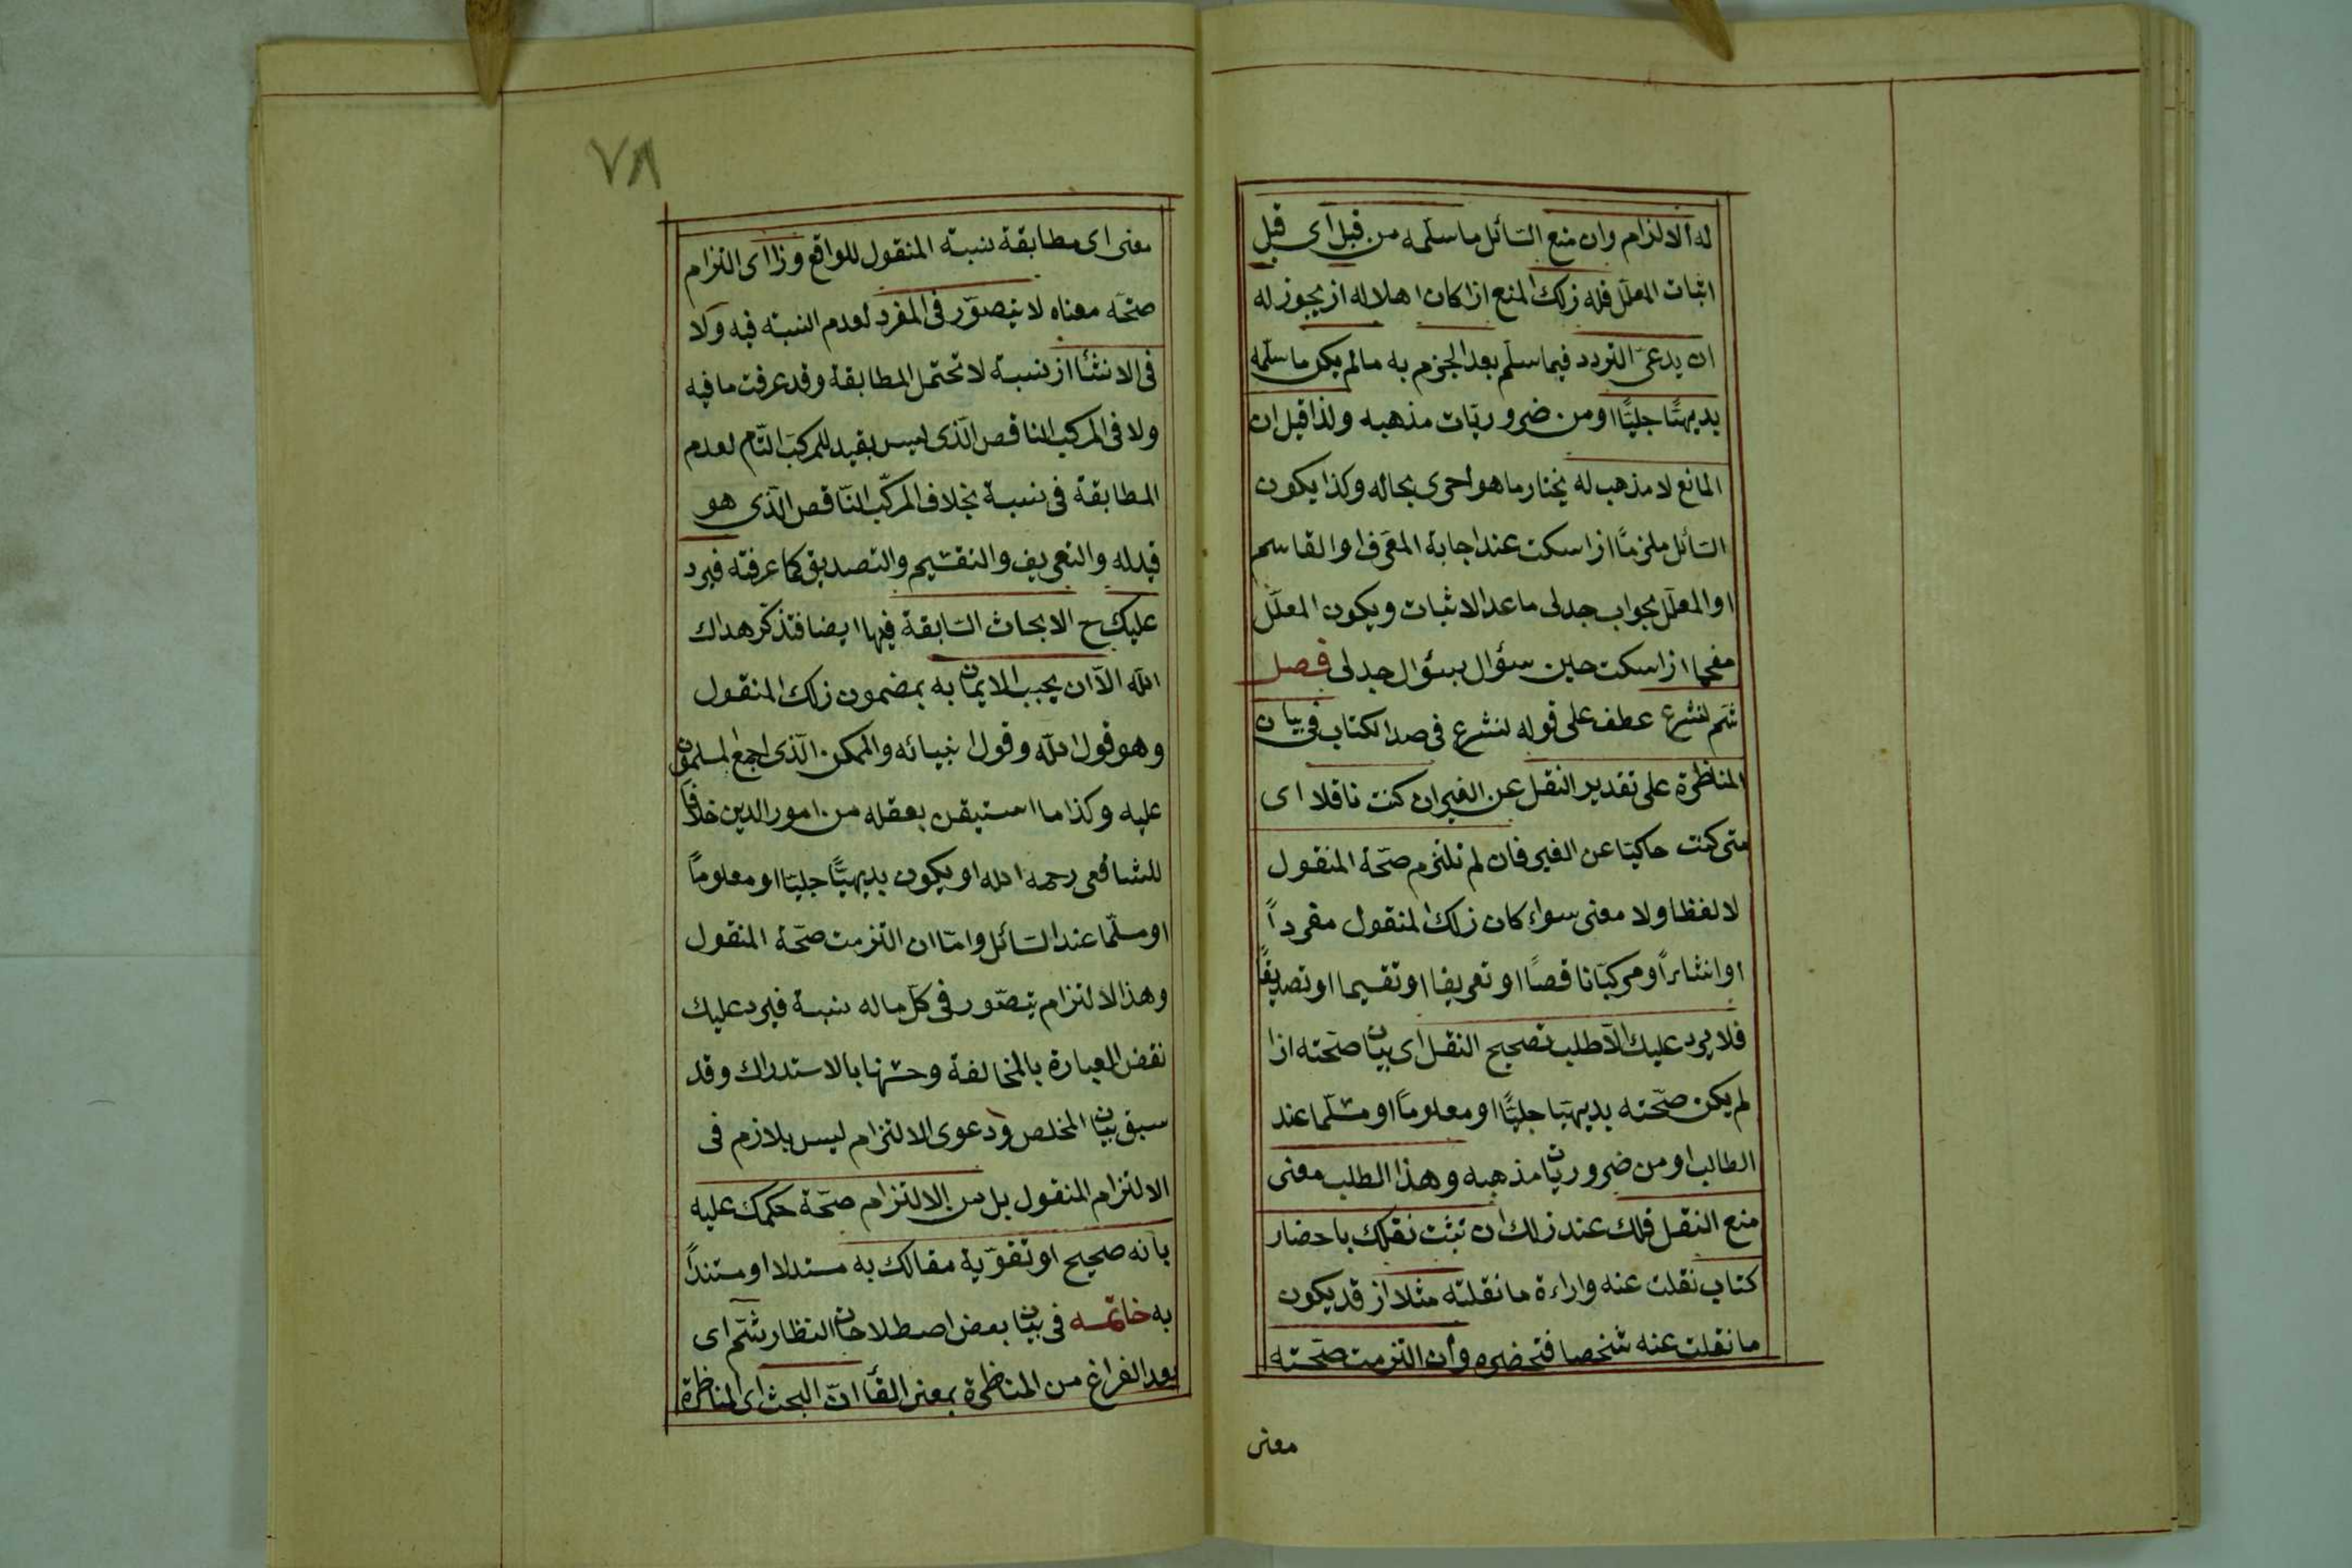 له الالزام وان منع السائل ما سلمه من قبل اى قبل
اثبات المعلل فله ذلك المنع اذا كان اهلا له اذ يجوز له
ان يدعى التردد فيما سلم بعد الجزم به مالم يكن ما سلمه
بديهيًّا جليًّا او من ضروريّات مذهبه ولذا قيل ان
المانع لا مذهب له يختار ما هو احرى بحاله وكذا يكون
السائل ملزمًا اذا سكت عند اجابة المعرف او القاسم
او المعلّل بجواب جدلى ما عدا الاثبات ويكون المعلّل
مفحما اذا سكت حين سؤال بسؤال جدلى فصل
ثم لنشرع عطف على قوله لنشرع فى صدر الكتاب فى بيان
المناظرة على تقدير النقل عن الغير ان كنت ناقلا اى
متى كنت حاكيًا عن الغير فان لم تلتزم صحّة المنقول
لا لفظا ولا معنى سواء كان ذلك المنقول مفرداً
او انشاءً او مركّبًا ناقصًا او تعريفا او تقسيما او تصديقًا
فلا يرد عليك الّا طلب تصحيح النقل اى بيان صحّته اذا
لم يكن صحّته بديهيّا جليًّا او معلومًا او مسلّما عند
الطالب او من ضروريّات مذهبه وهذا الطلب معنى
منع النقل فلك عند ذلك ان تثبت نقلك باحضار
كتاب نقلت عنه واراءة ما نقلته مثلا اذ قد يكون
ما نقلت عنه شخصا فتحضره وان التزمت صحّته
معنى
٧٨
معنى اى مطابقة نسبة المنقول للواقع وذا اى التزام
صحّه معناه لا يتصوّر فى المفرد لعدم النسبة فيه ولا
فى الانشاء اذ نسبة لا تحتمل المطابقة وقد عرفت ما فيه
ولا فى المركب الناقص الّذى ليس بقيد للمركّب التّام لعدم
المطابقة فى نسبة بخلاف المركّب النّاقص الّذى هو
قيد له والتعريف والتقسيم والتصديق كما عرفته فيرد
عليك ح الابحاث السّابقة فيها ايضا فتذكّر هداك
الله الّا ان يجب الايمان به بمضمون ذلك المنقول
وهو قول الله وقول انبيائه والممكن الّذى اجمع المسلمون
عليه وكذا ما استيقن بعقله من امور الدين خلافًا
للشافعى رحمه الله او يكون بديهيًّا جليّا او معلومًا
او مسلّما عند السّائل وامّا ان التزمت صحّة المنقول
وهذا الالتزام يتصّور فى كلّ ماله نسبة فيرد عليك
نقض العبارة بالمخالفة وحسنها بالاستدراك وقد
سبق بيان المخلص ودعوى الالتزام ليس بلازم فى
الالتزام المنقول بل من الالتزام صحّة حكمك عليه
بانه صحيح او تقوّية مقالك به مستدلا او مستنداً
به خاتمه فى بيان بعض اصطلاحات النظار ثمّ اى
بعد الفراغ من المناظرة بمعنى الفاء انّ البحث اى المناظرة